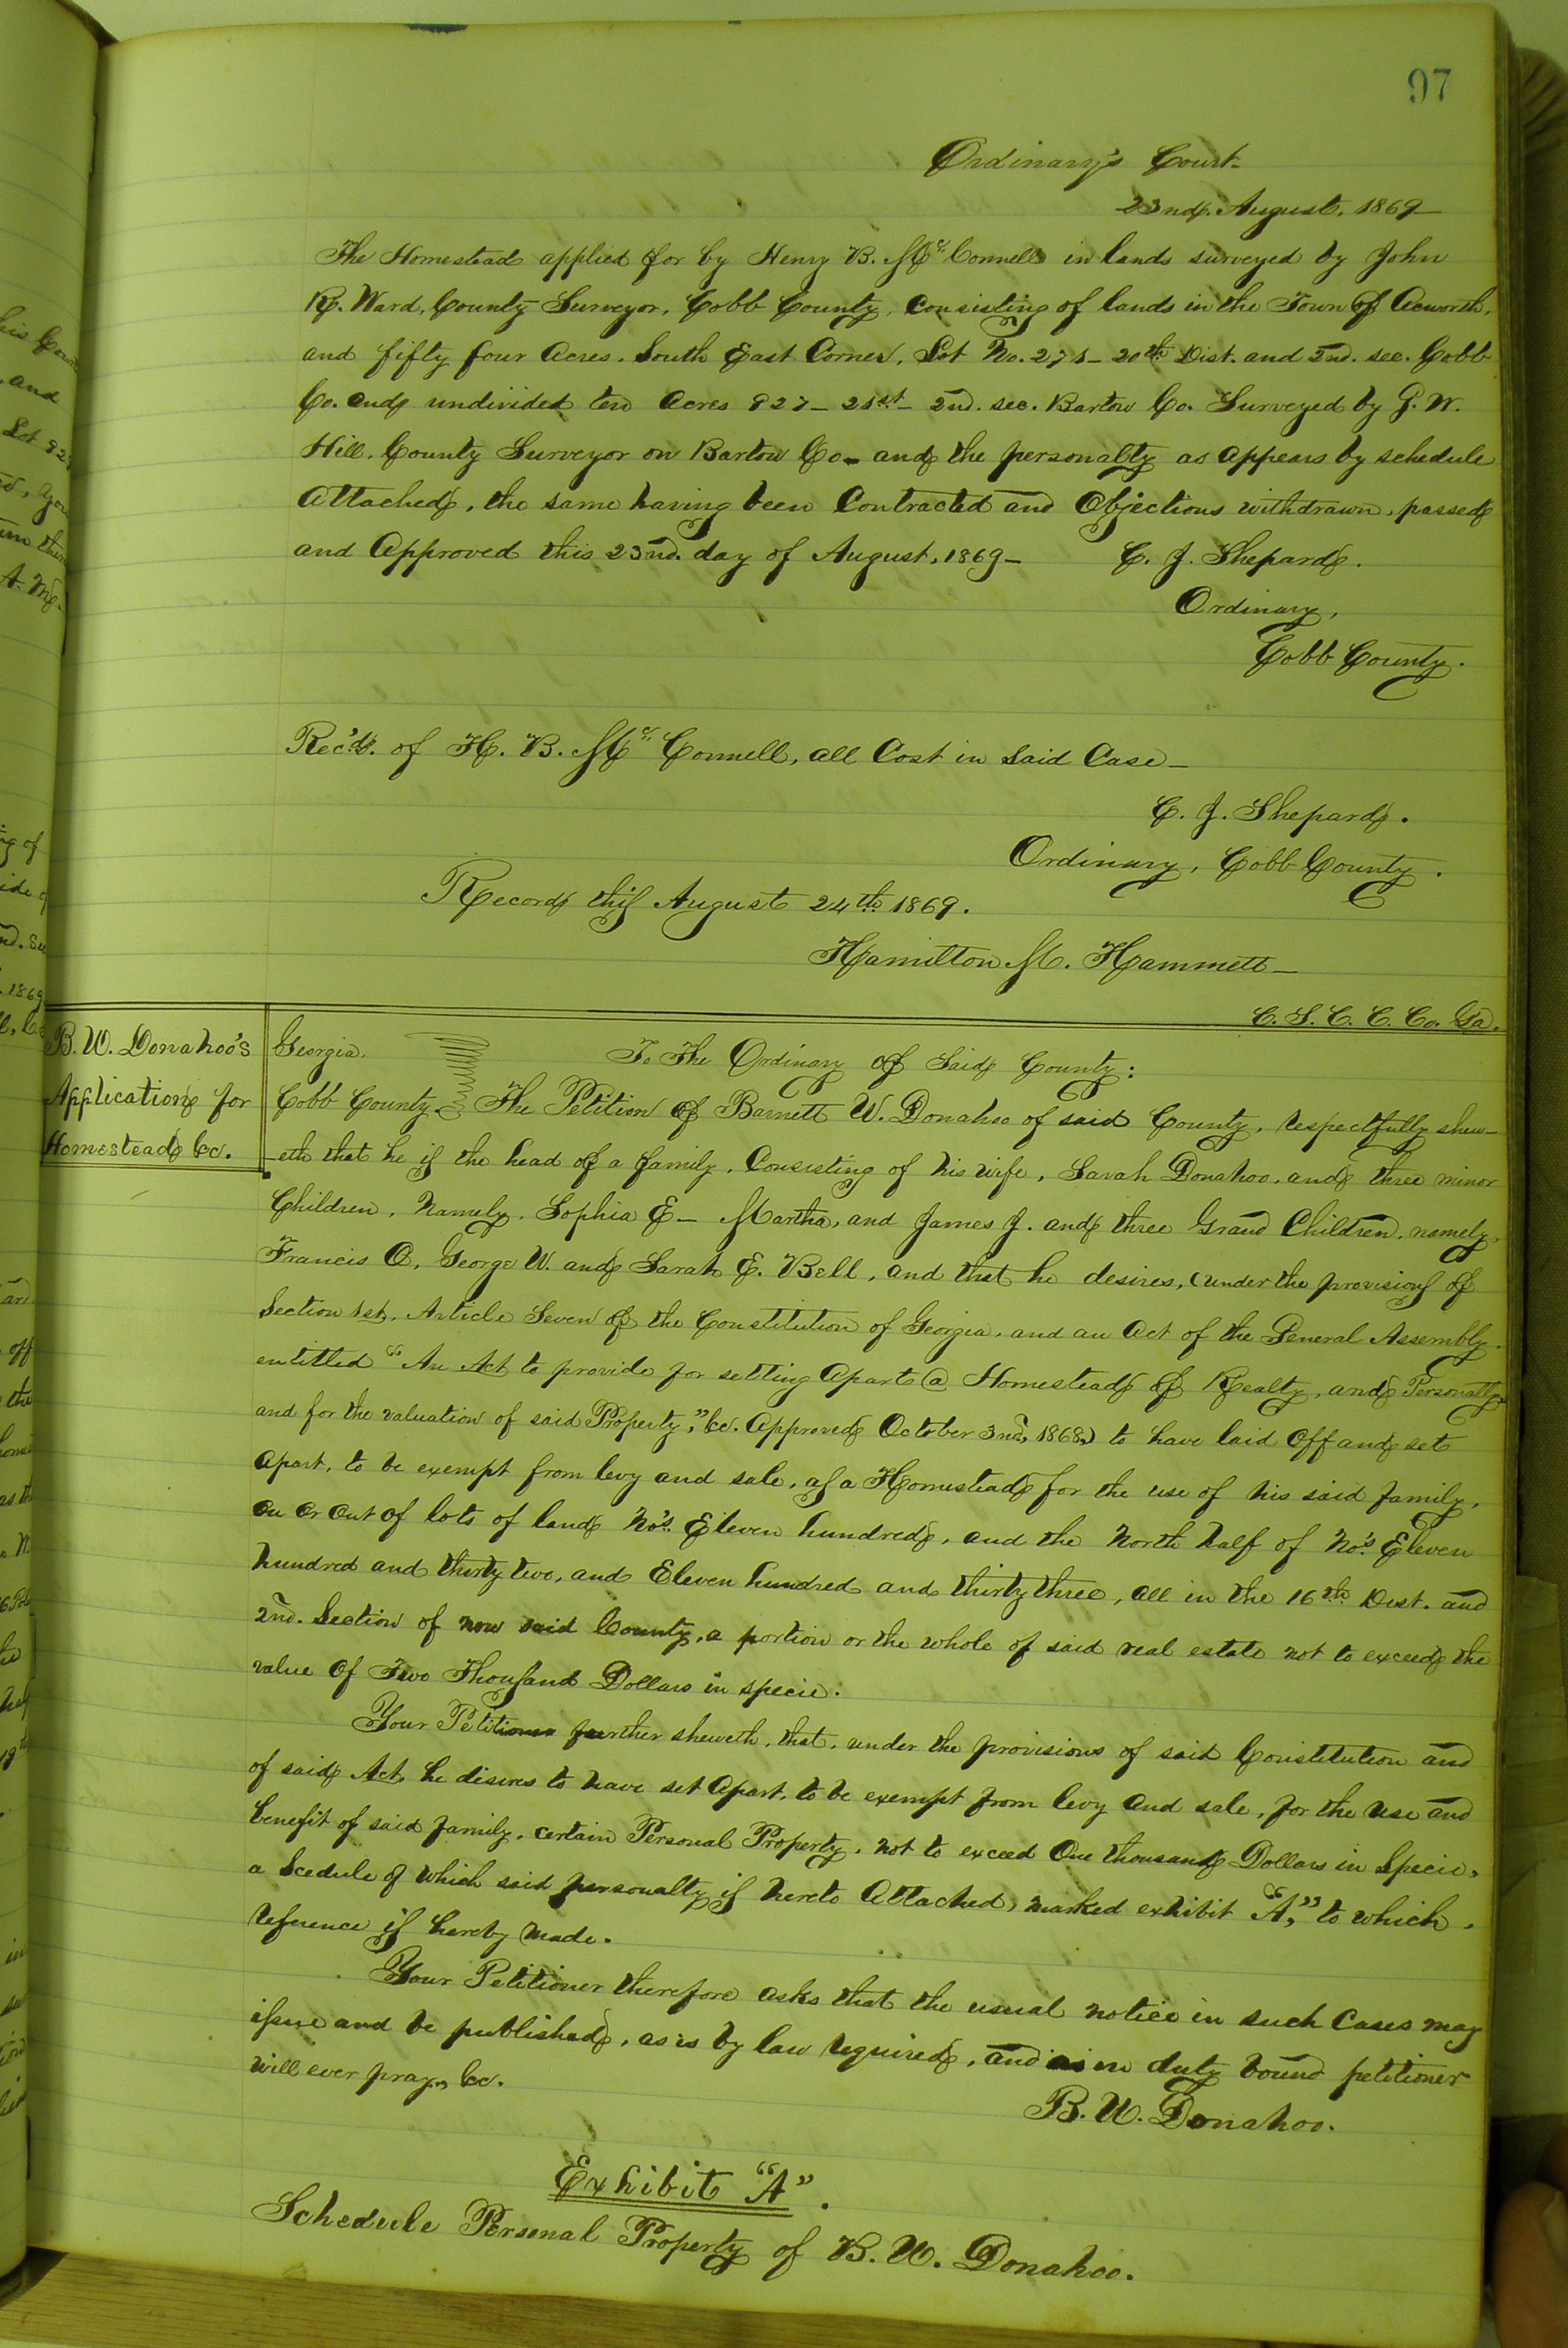 97
Ordinary's Court
23nd. August. 1869
The Homestead applied for by Henry B. McConnell in lands surveyed by John
R. Ward, County Surveyor, Cobb County, Consisting of lands in the Town of Acworth,
and fifty four Acres. South East Corner, Lot No. 271 - 20th Dist. and 2nd. sec. Cobb
Co. and undivided ten Acres 827 - 21st - 2nd. sec. Bartow Co. Surveyed by G. W.
Hill. County Surveyor on Bartow Co - and the personalty as appears by schedule
Attached, the same having been Contracted and Objections withdrawn, passed
and Approved this 23nd. day of August, 1869 - C. J. Shepard.
Ordinary,
Cobb County.
Rec'd. of H. B. McConnell, all Cost in said Case -
C. J. Shepard.
Ordinary, Cobb County.
Record this August 24th 1869.
Hamilton M. Hammett -
C. S. C. C. Co. Ga.
B. W. Donahoo's
Application for
Homestead &c.
Georgia. To The Ordinary of Said County:
Cobb County. The Petition of Barnett W. Donahoo of said County, respectfully shew-
-eth that he is the head of a family, Consisting of his wife, Sarah Donahoo, and three minor
Children, Namely, Sophia E - Martha, and James J. and three Grand Children, namely,
Francis O, George W. and Sarah E. Bell, and that he desires, (under the provisions of
Section 1st, Article Seven of the Constitution of Georgia, and an Act of the General Assembly.
entitled "An Act to provide for setting Apart @ Homestead of Realty, and Personalty,
and for the valuation of said Property," &c. Approved October 3nd, 1868,) to have laid off and set
Apart, to be exempt from levy and sale, as a Homestead for the use of his said family,
on or out of lots of land No's. Eleven hundred, and the North half of No's Eleven
hundred and thirty two, and Eleven hundred and thirty three, all in the 16th Dist. and
2nd. Section of now said County, a portion or the whole of said real estate not to exceed the
value of Two Thousand Dollars in specie.
Your Petitioner further sheweth, that, under the provisions of said Constitution and
of said Act, he disires to have set Apart, to be exempt from levy and sale, for the use and
benefit of said family, certain Personal Property, not to exceed One thousand Dollars in Specie,
a Scedule of which said personalty is hereto Attached, marked exhibit "A," to which
reference is hereby made.
Your Petitioner therefore asks that the usual notice in such Cases may
issue and be published, as is by law required, and as in duty bound petitioner
will ever pray, &c.
B. W. Donahoo.
Exhibit "A".
Schedule Personal Property of B. W. Donahoo.